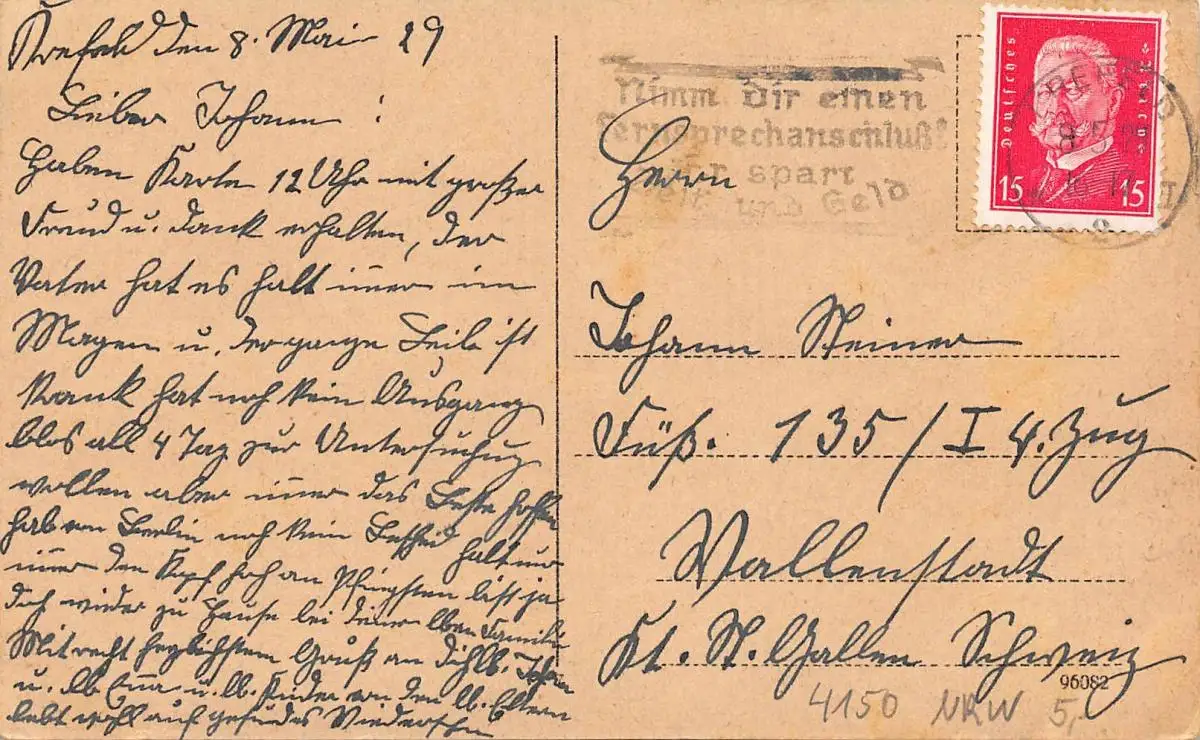 Krefeld den 8. Mai 29
Lieber Johann!
Haben Karte 12 Uhr mit großer
Freud u. Dank erhalten, der
Vater hat es halt imer im
Magen u. der ganze Teile ist
krank hat noch kein Ausgang
blos all 4 Tag zur Untersuchug
wollen aber imer das Beste hoffen
hab von Berlin noch kein Bescheid halt nur
imer den Kopf hoch an Pfingsten bist ja
doch wieder zu Hause bei deiner lben Familie
Mit recht herzlichstem Gruß an dich lb. Johann
u. lb Ema u. lb. Kinder von den lb. Eltern
lebt wohl auf gesundes Wiedersehn
Nimm Dir einen
Fernsprechanschluß!
spart
und Geld
Deutsches Reich
15 15
KREFELD
Herrn
Johann Steiner
Füß. 135/I 4. Zug
Wallenstadt
Kt. St. Gallen Schweiz
96082
4150 NRW 5,-